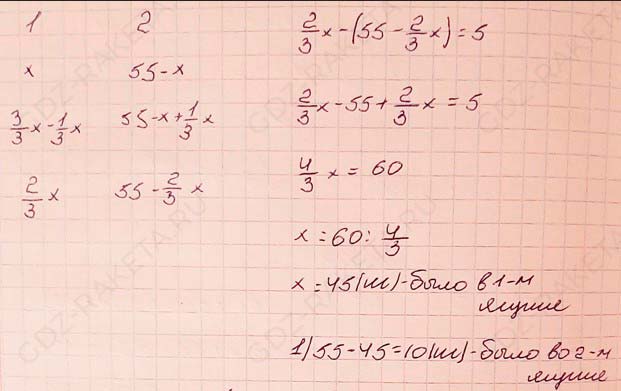 1 2
x 55-x
3/3 x - 1/3 x 55-x+1/3 x
2/3 x 55-2/3 x
2/3 x-(55-2/3 x)=5
2/3 x-55+2/3 x=5
4/3 x=60
x=60:4/3
x=45(ш)-было в 1-м
ящике
1) 55-45=10(ш)-было во 2-м
ящике
GDZ-RAKETA.RU